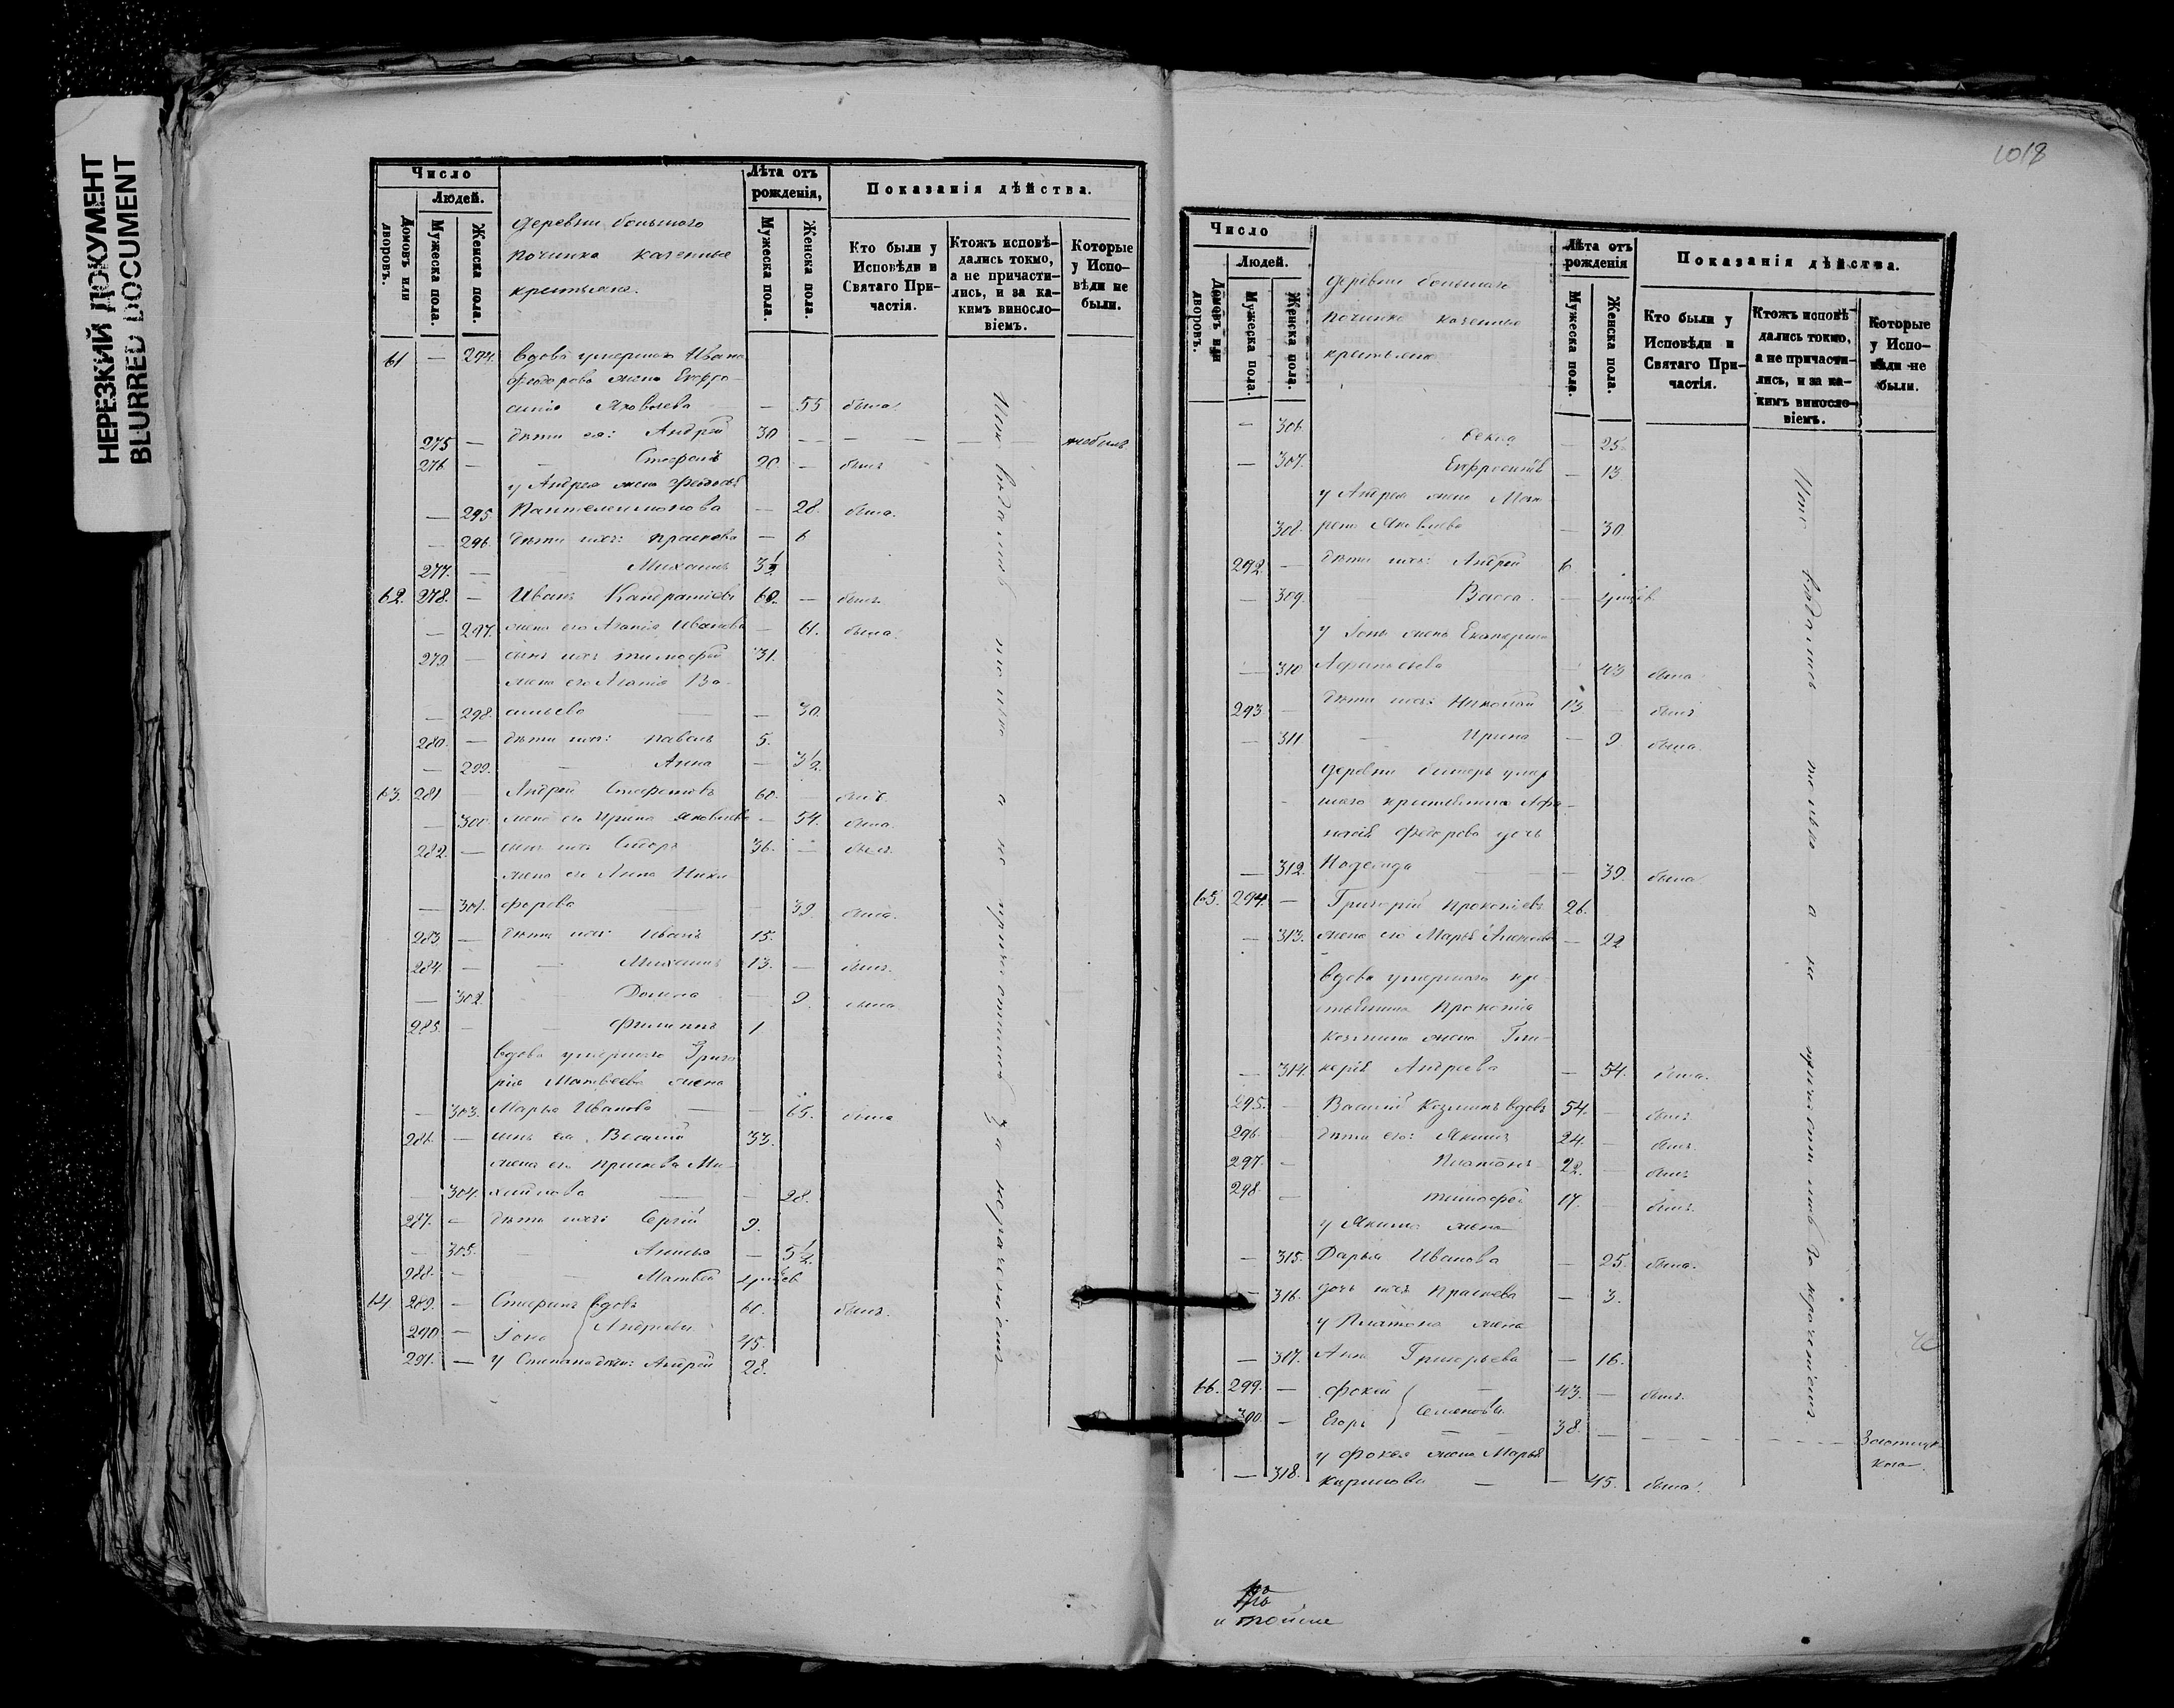 НЕРЕЗКИЙ ДОКУМЕНТ
BLURRED DOCUMENT
Число
Людей.
Домовъ или дворовъ.
Мужеска пола.
Женска пола.
деревни большого
починка казенные
крестьяне.
Лѣта отъ рожденія,
Мужеска пола.
Женска пола.
Показанія дѣйства.
Кто были у Исповѣди и Святаго Причастія.
Ктожъ исповѣдались токмо, а не причастились, и за каким винословіемъ.
Которые у Исповѣди не были.
61 — 294. вдова умершаго Ивана
Феодорова жена Евфро-
синія Яковлева — 55 была.
275 — дѣти ея: Андрей 30 — — — не былъ
276 — — Стефанъ 20. — былъ
у Андрея жена Феодосья
— 295. Пантелеимонова — 28. была.
— 296. дѣти ихъ: Прасковья — 6
277. — — Михаилъ 3½
62. 278. — Иванъ Кандратіевъ 60. — былъ
— 297. жена его Агапія Иванова — 61. была.
279. — сынъ ихъ Тимофей 31.
жена его Ва-
— 298. сильева — — 30.
280. — дѣти ихъ: Павелъ 5.
— 299. — Анна — 3½.
63. 281 — Андрей Стефановъ 60. — былъ.
— 300. жена его Ирина Яковлева — 54. была.
282. — сынъ ихъ Сидоръ 36. — былъ.
жена его Анна Ники-
— 301. форова — — 39. была.
283. — дѣти ихъ: Иванъ 15.
284. — — Михаилъ 13. — былъ.
— 302. — — 9. была
285. — — Филиппъ 1
вдова умершаго Григо-
рія Матвеева жена
— 303. Марья Иванова — — 65. была
286. — сынъ ея Василій 33.
жена его Прасковья Ми-
— 304. хайлова — — 28.
287. — дѣти ихъ: Сергій 9.
— 305. — Анисья — 5½.
288. — — Матвей
64 289. — Стефанъ вдовъ 60. былъ.
290. — Іона Андреевы 45.
291. — у Степана дѣти: Андрей 28.
исповѣдались только а не причастились за нераченіемъ
1018
Число
Людей.
Домовъ или дворовъ.
Мужеска пола.
Женска пола.
деревни большого
починка казенные
крестьяне
Лѣта отъ рожденія
Мужеска пола.
Женска пола.
Показанія дѣйства.
Кто были у Исповѣди и Святаго Причастія.
Ктожъ исповѣдались токмо, а не причастились, и за каким винословіемъ.
Которые у Исповѣди не были.
— 306. Фекла — 25.
— 307. Евфросинія — 13
у Андрея жена Мав-
308. рена Яковлева — 30.
292. — дѣти ихъ: Андрей 6.
— 309. — Васса. —
у Іоны жена Екатерина
— 310 Афанасьева — 43 была.
293. — дѣти ихъ: Николай 13 — былъ.
— 311. — Ирина — 9 была.
деревни умер-
шаго крестьянина Афа-
насія Федорова дочь
— 312. Надежда — — 39. была
65. 294. — Григорій Прокопіевъ 26.
— 313. жена его Марья Алексеева — 22
вдова умершаго кре-
стьянина Прокопія
Козьмина жена Гли-
— 314. керія Андреева — 54. была.
295. — Василій Козьминъ вдовъ 54. — былъ.
296. — дѣти его: Якимъ 24. — былъ.
297. — Платонъ 22. — былъ
298. — Тимофей 17. — былъ.
у Якима жена
— 315. Дарья Иванова — 25. была.
— 316. дочь ихъ Прасковья — 3.
у Платона жена
— 317. Анна Григорьева — 16.
66. 299. — Фокей 43. — былъ.
300. — Егоръ Семеновы 38. — — —
у Фокея жена Марья
— 318. Кирилова — — 45. была.
исповѣдались только а не причастились за нераченіемъ